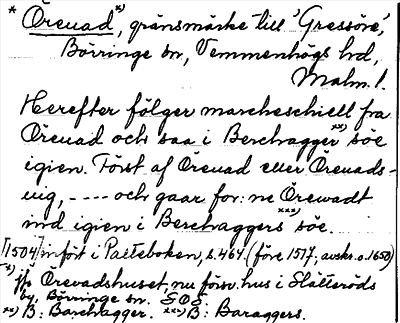 * Öreuad*), gränsmärke till 'Gressöre',
Börringe sn, Vemmenhögs hd,
Malm. l.
Herefter fölger marcheschiell fra
Öreuad och saa i Berchagger**) söe
igien. Först af Öreuad eller Öreuads-
uig, ---- och gaar for:ne Örewadt
ind igien i Berchaggers***) söe.
[1504] infört i Palteboken, s. 464. (före 1517; avskr. o. 1650)
*) jfr Örevadshuset, nu försv. hus i Slätteröds
by, Börringe sn. SOS.
**) B: Barchagger. ***) B: Baraggers.